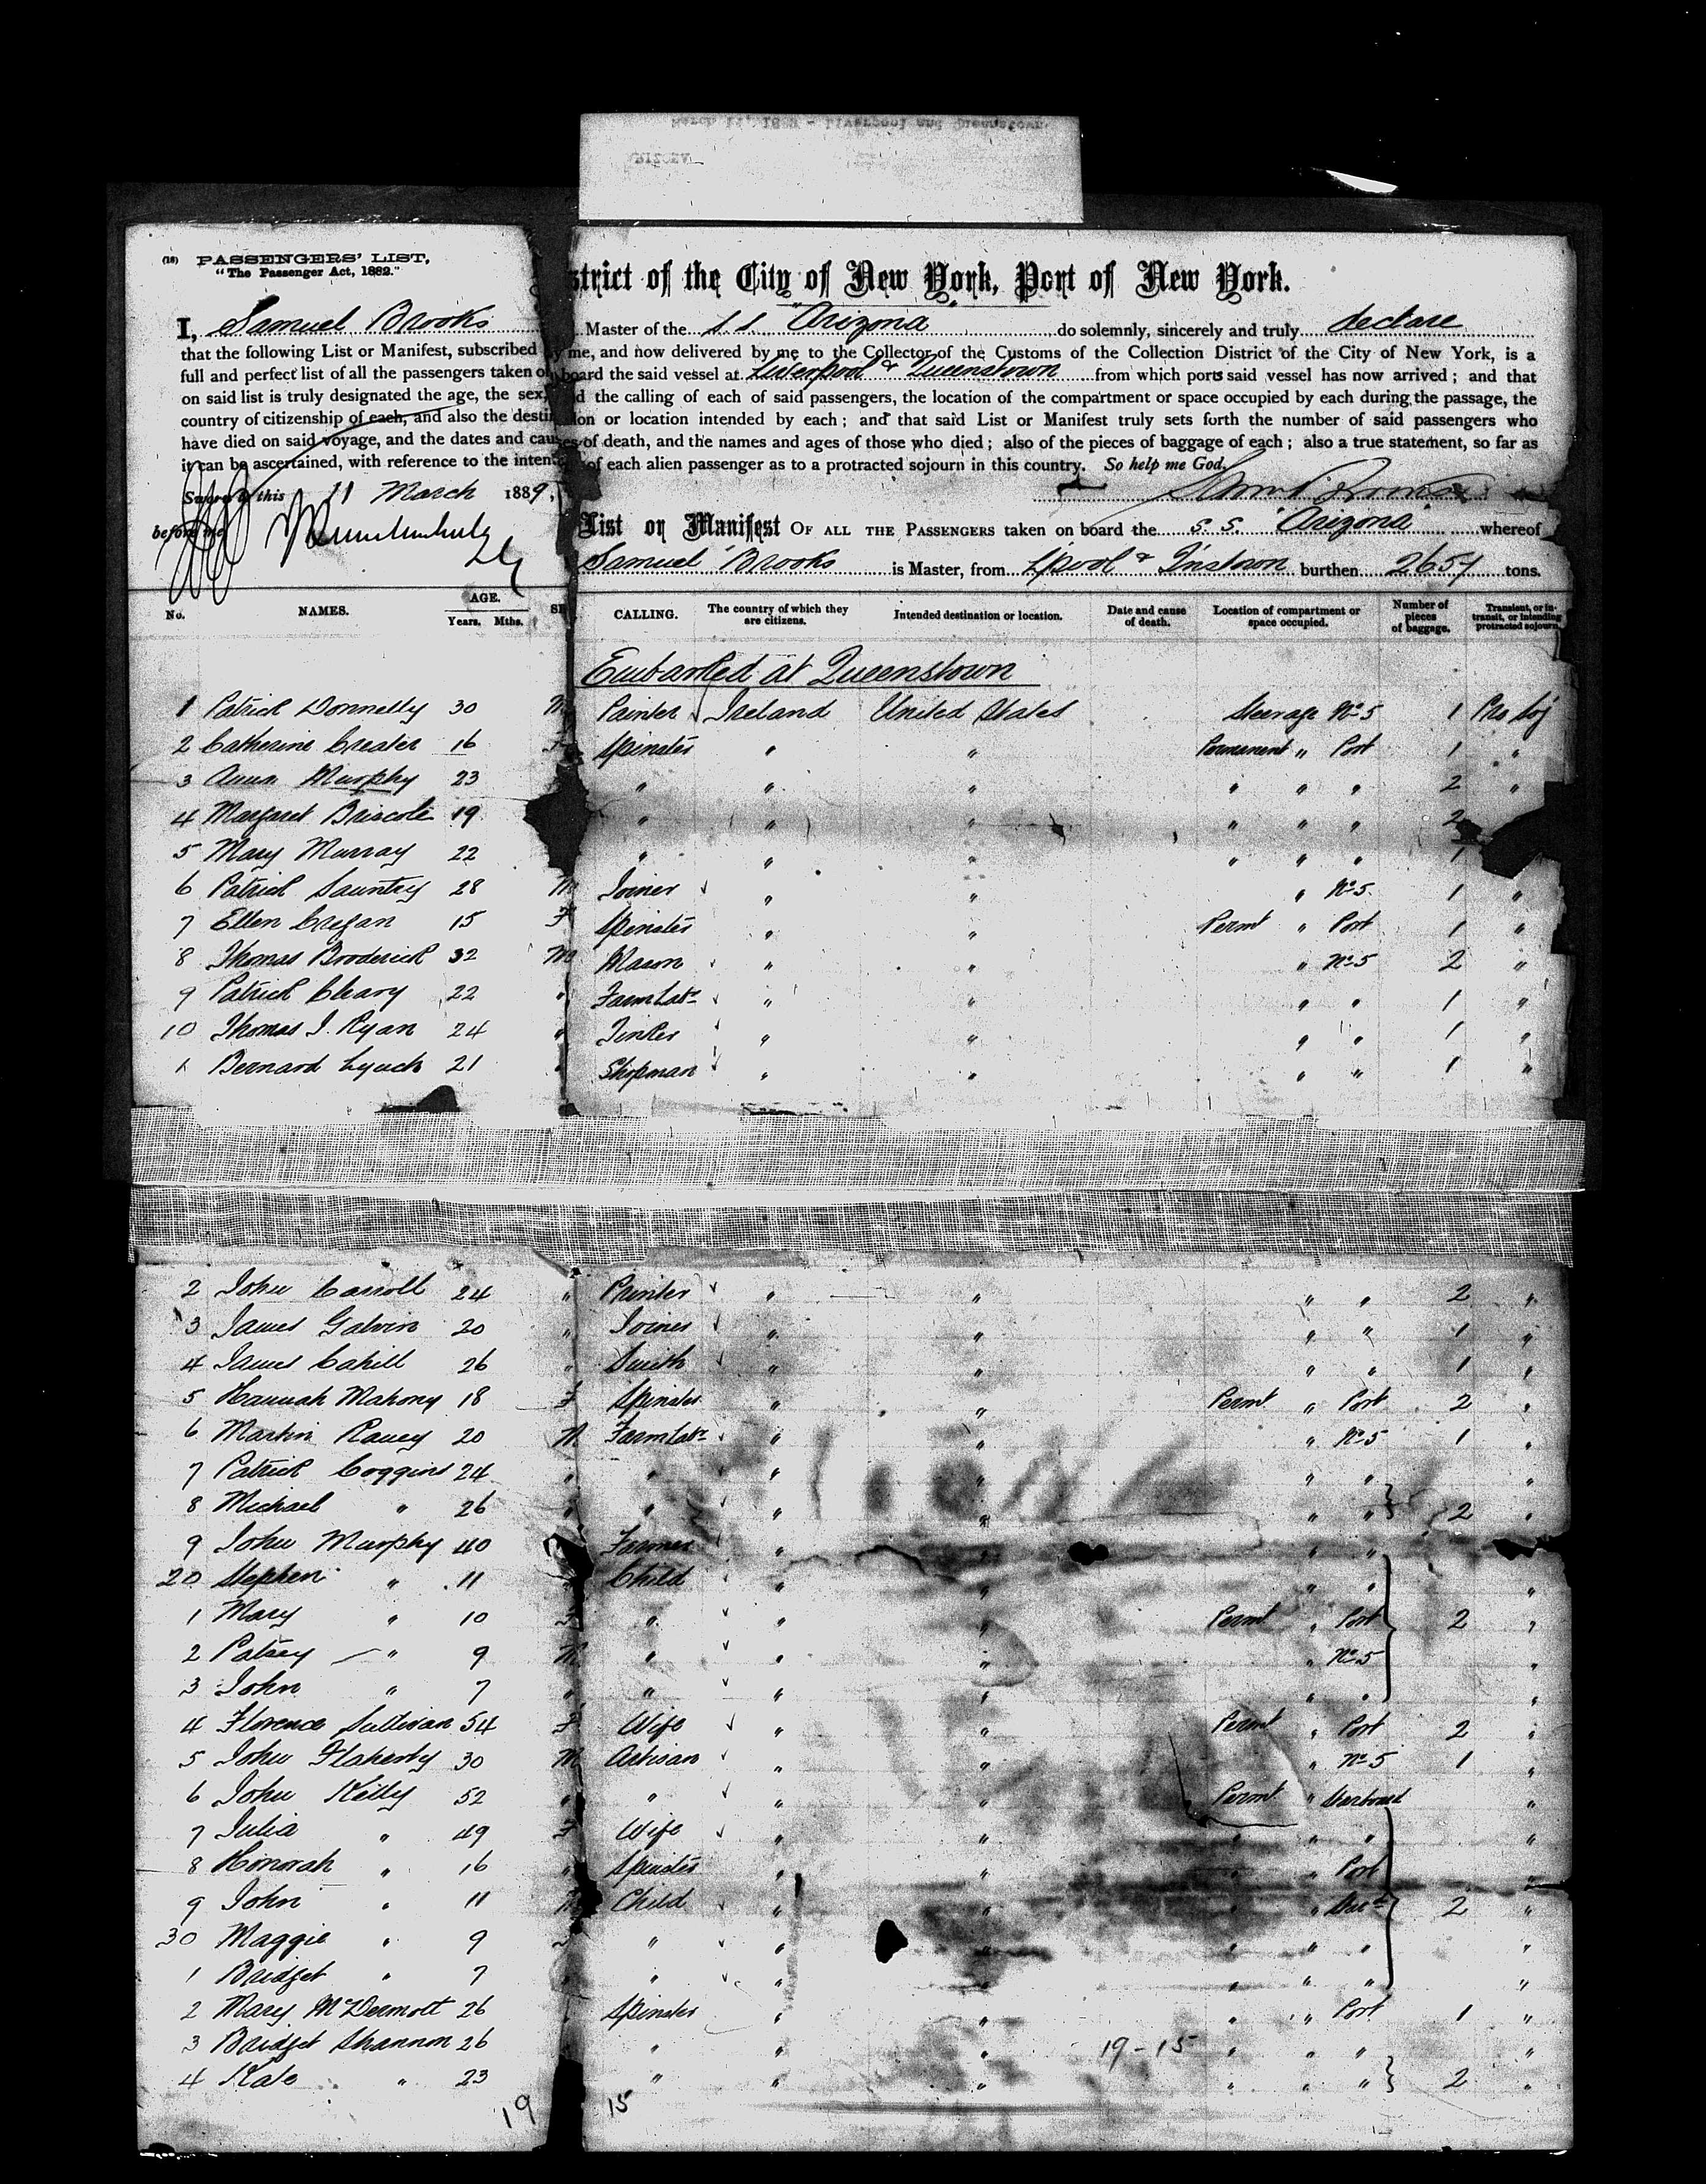 (18) PASSENGERS' LIST,
"The Passenger Act, 1882."
strict of the City of New York, Port of New York.
I, Samuel Brooks Master of the s.s. "Arizona" do solemnly, sincerely and truly declare
that the following List or Manifest, subscribed by me, and now delivered by me to the Collector of the Customs of the Collection District of the City of New York, is a
full and perfect list of all the passengers taken on board the said vessel at Liverpool & Queenstown from which ports said vessel has now arrived; and that
on said list is truly designated the age, the sex, and the calling of each of said passengers, the location of the compartment or space occupied by each during the passage, the
country of citizenship of each, and also the destination or location intended by each; and that said List or Manifest truly sets forth the number of said passengers who
have died on said voyage, and the dates and causes of death, and the names and ages of those who died; also of the pieces of baggage of each; also a true statement, so far as
it can be ascertained, with reference to the intention of each alien passenger as to a protracted sojourn in this country. So help me God.
Sworn to this 11 March 1889,
before me
List or Manifest OF ALL THE PASSENGERS taken on board the s.s. "Arizona" whereof
Samuel Brooks is Master, from L'pool & Q'nstown burthen tons.
No. NAMES. AGE. Years. Mths. SE CALLING. The country of which they are citizens. Intended destination or location. Date and cause of death. Location of compartment or space occupied. Number of pieces of baggage. Transient, or in-transit, or intending protracted sojourn.
Embarked at Queenstown
1 Patrick Donnelly 30 M Painter Ireland United States Steerage No 5 1 Pro Soj
2 Catherine 16 F Spinster " " Permanent " Port 1 "
3 Annn Murphy 23 " " " " " " 2 "
4 Margaret Briscoe 19 " " " " " " 2
5 Mary Murray 22 " " " " " " 1
6 Patrick Sauntry 28 M Joiner " " " No 5 1 "
7 Ellen Cregan 15 F Spinster " " Permt " Port 1 "
8 Thomas Broderick 32 M Mason " " " No 5 2 "
9 Patrick Cleary 22 " Farm Labr " " " " 1 "
10 Thomas J. Ryan 24 " " " " " 1 "
1 Bernard Lynch 21 " Shopman " " " " 1 "
2 John Carroll 24 " Printer " " " " 2 "
3 James Galvin 20 " Joiner " " " " 1 "
4 James Cahill 26 " Smith " " " " 1 "
5 Hannah Mahony 18 F Spinster " " Permt " Port 2 "
6 Martin Raney 20 M Farm Labr " " " No 5 1 "
7 Patrick Coggins 24 " " " " " " "
8 Michael " 26 " " " " " " 2 "
9 John Murphy 40 Farmer " " " "
20 Stephen " 11 " Child " " " " "
1 Mary " 10 F " " " Permt " Port 2 "
2 Patsey " 9 M " " " " No 5 "
3 John " 7 " " " " " " "
4 Florence Sullivan 54 F Wife " " Permt " Port 2 "
5 John Flaherty 30 M Artisan " " " No 5 1 "
6 John Kelly 52 " " " " Permt " Starboard "
7 Julia " 49 F Wife " " " " " "
8 Honorah " 16 " Spinster " " " " Port "
9 John " 11 M Child " " " " Starbd 2 "
30 Maggie " 9 F " " " " " " "
1 Bridget " 7 " " " " " " " "
2 Mary McDermott 26 " Spinster " " " " Port 1 "
3 Bridget Shannon 26 " " " 19-15 " " " "
4 Kate " 23 " " " " " " 2 "
19 15